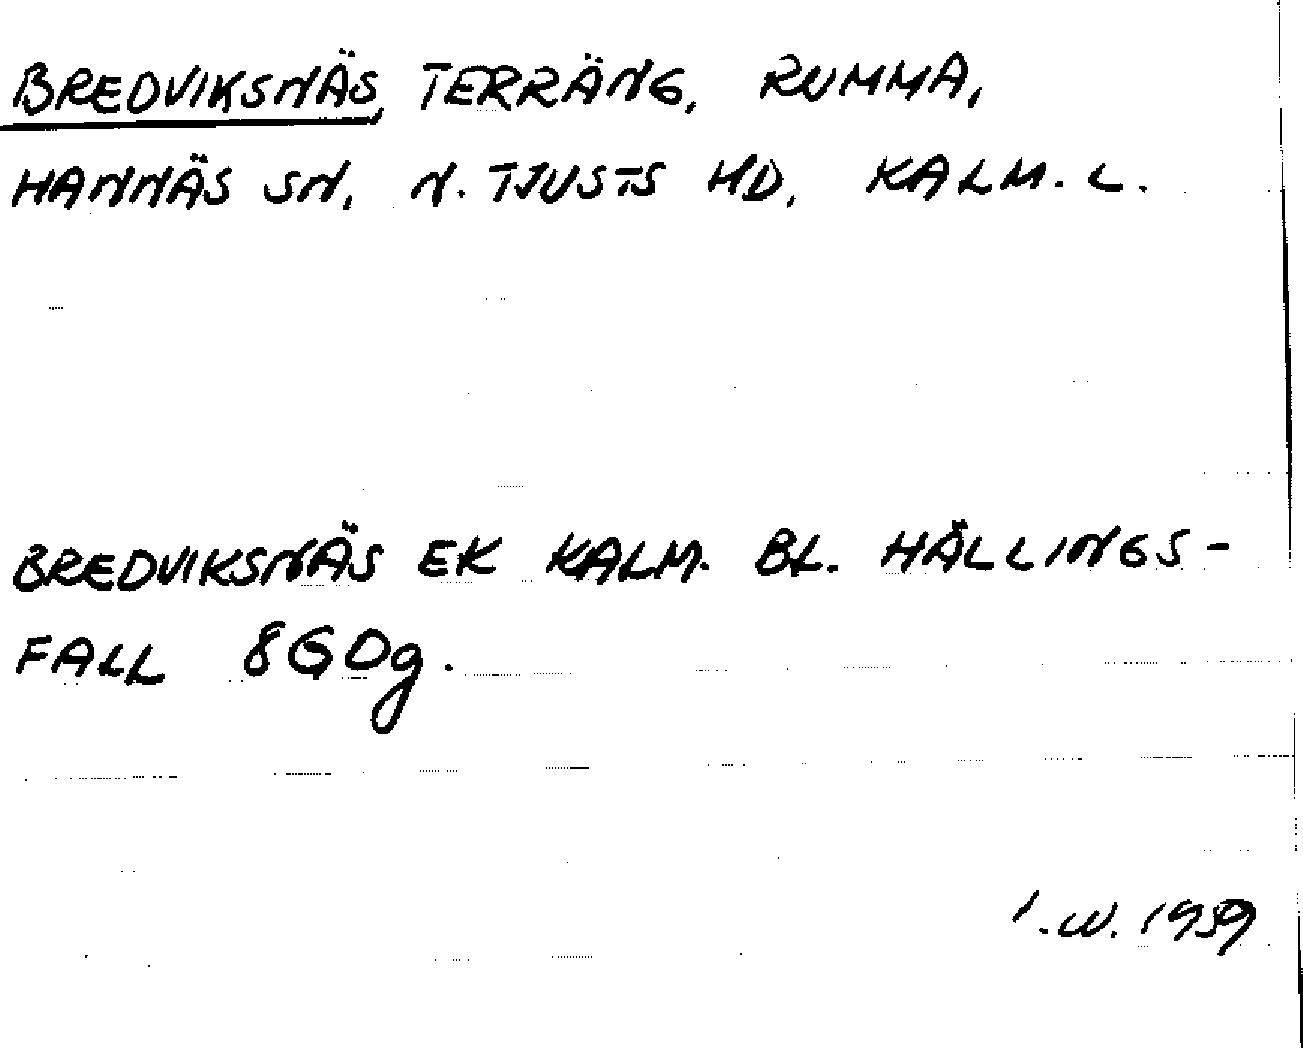 BREDVIKSNÄS, TERRÄNG, RUMMA,
HANNÄS SN, N. TJUSTS HD, KALM. L.
BREDVIKSNÄS EK KALM. BL. HÄLLINGS-
FALL 8G0g.
I.W. 1959